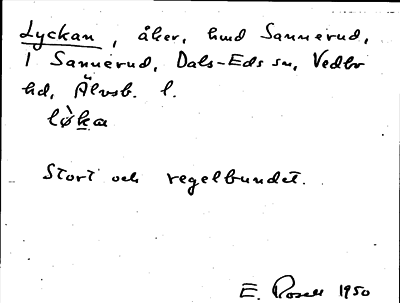 Lyckan, åker, hmd Sannerud,
1 Sannerud, Dals-Eds sn, Vedbo
hd, Älvsb. l.
lø̀ka
Stort och regelbundet.
E. Rosell 1950